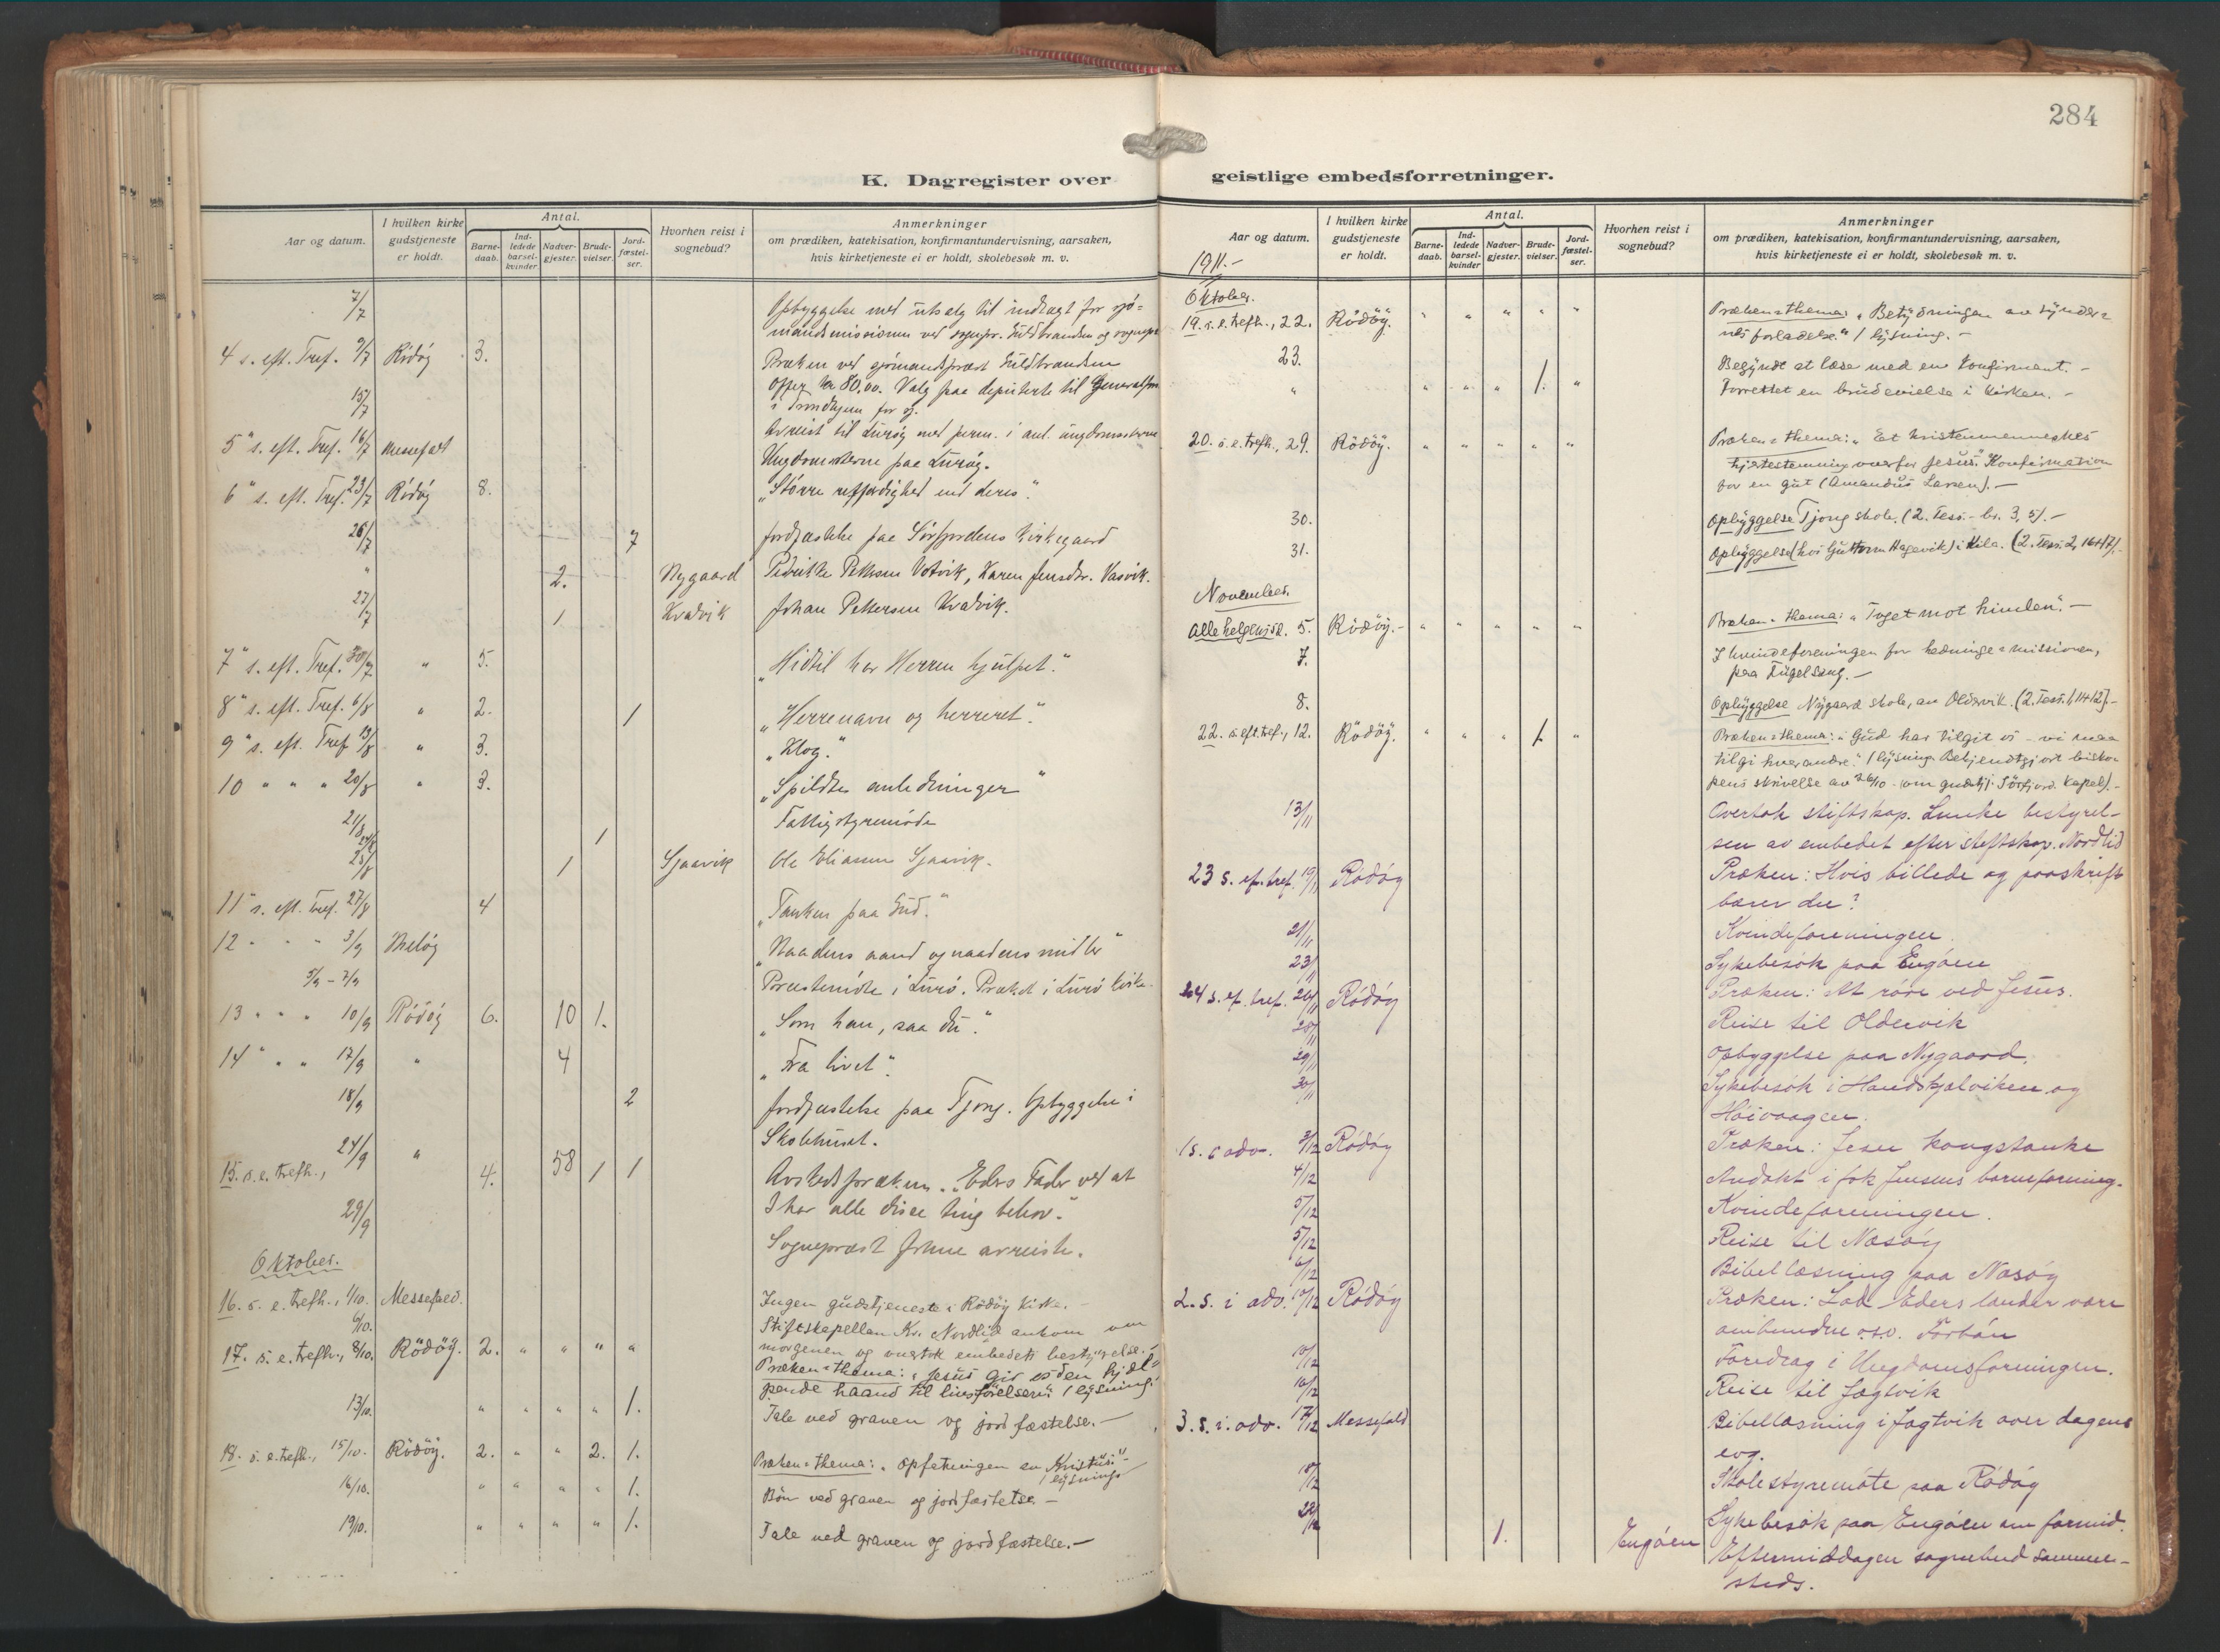 284
K. Dagregister over geistlige embedsforretninger.
Aar og datum.
I hvilken kirke gudstjeneste er holdt.
Antal.
Barne-daab.
Ind-ledede barsel-kvinder.
Nadver-gjester.
Brude-vielser.
Jord-fæstel-ser.
Hvorhen reist i sognebud?
Anmerkninger
om prædiken, katekisation, konfirmantundervisning, aarsaken,
hvis kirketjeneste ei er holdt, skolebesøk m. v.
7/7 Opbyggelse med utsalg til indtægt for sjø-
mandsmissionen ved
4 s. eft. Tref. 9/7 Rödöy 3. Præken ved sjömandsprest Guldbrandsen
Offer kr 80,00. Valg paa deputerte til
i Trondhjem for
15/7 Avreist til Luröy med
5 s. eft. Tref. 16/7 Messefald Ungdomsstevne paa Luröy.
6 s. eft. Tref. 23/7 Rödöy 8. „Större retfærdighed end deres".
26/7 7 Jordfæstelse paa Sörfjordens Kirkegaard
" 2. Nygaard Petersen Votvik, Karen Jensdtr. Vasvik.
27/7 1 Kvadvik Johan Pettersen Kvadvik.
7 s. eft. Tref. 30/7 " 5. „Hidtil har Herren hjulpet."
8 s. eft. Tref. 6/8 " 2. 1 „Herrenavn og herreret".
9 s. eft. Tref 13/8 " 3. „Klog."
10 " " " 20/8 " 3. „Spildte anledninger"
21/8 Fattigstyremöde
1
25/8 1 Sjaavik Ole Eliasen Sjaavik.
11 s. eft. Tref. 27/8 4 „Tanken paa Gud."
12 " " " 3/9 Melöy „Naadens aand og naadens midler"
5/9 - 7/9 Prestemöte i Lurö. Præket i Lurö kirke.
13 " " " 10/9 Rödöy 6. 10 1. „Som han, saa du."
14 " " " 17/9 " 4 „Fra livet".
18/9 2 Jordfæstelse paa Tjong. Opbyggelse i
Skolehuset.
15. s. e. trefh., 24/9 " 4. 58 1 1 Avskedspræken. „Eders Fader ved at
I har alle disse ting behov."
29/9 Sogneprest avreiste.
Oktober.
16. s. e. trefh., 1/10. Messefald. Ingen gudstjeneste i Rödöy kirke. -
6/10. Stiftskapellan Kr. Nordlid ankom om
morgenen og overtok embedets bestyrelse. -
17. s. e. trefh., 8/10. Rödöy. 2. " " " " Præken-thema: „Jesus gir os den hjæl-
pende haand til livsförelsern" 1 lysning.
13/10. " " " " 1. Tale ved graven og jordfæstelse. -
18. s. e. trefh., 15/10. Rödöy. 2. " " 2. 1. Præken-thema: „Opfatningen av Kristus." -
1 lysning
16/10. " " " " 1. Bön ved graven og jordfæstelse -
19/10. " " " " 1. Tale ved graven og jordfæstelse. -
Aar og datum.
I hvilken kirke gudstjeneste er holdt.
Antal.
Barne-daab.
Ind-ledede barsel-kvinder
Nadver-gjester.
Brude-vielser.
Jord-fæstel-ser.
Hvorhen reist i sognebud?
Anmerkninger
om prædiken, katekisation, konfirmantundervisning, aarsaken,
hvis kirketjeneste ei er holdt, skolebesøk m. v.
1911. -
Oktober.
19. s. e. trefh., 22. Rödöy. " " " " " Præken-thema: „Betydningen av synder-
nes forladelse." 1 lysning. -
23. Begyndt at læse med en konfirmant. -
" " " " 1. " Forrettet en brudevielse i kirken. -
20. s. e. trefh., 29. Rödöy. " " " " " Præken-thema: „Et kristenmenneskes
hjertestemning overfor Jesus." Konfirmation
for en gut (Amandus Larsen). -
30. Opbyggelse Tjong skole. (2. Tess.- br. 3, 5). -
31. Opbyggelse (hos Guttorm Hagevik) i Kila. (2. Tess. 2, 16+17). -
November.
Allehelgensd. 5. Rödöy. - " " " " " Præken-thema: „Toget mot himlen". -
7. I kvindeforeningen for hedninge-missionen,
paa Fugelsang. -
8. Opbyggelse Nygaard skole, av Oldervik. (2. Tess. 1, 11+12). -
22. s. eft. tref., 12. Rödöy. " " " 1. " Præken-thema: „Gud har tilgit os - vi maa
tilgi hverandre." 1 lysning. Bekjendtgjort bisko-
pens skrivelse av 26/10 (om gudstj. i Sörfjord. Kapel). -
13/11 Overtok stiftskap. Lunke bestyrel-
sen av embedet efter stiftskap. Nordlid
23 s. ef. tref. 19/11 Rödöy Præken: Hvis billede og paaskrift
bærer du?
21/11 Kvindeforeningen.
23/11 Sykebesök paa Engöen
24 s. ef. tref. 26/11 Rödöy Præken: At röre ved Jesus.
28/11 Reise til Oldervik
29/11 Opbyggelse paa Nygaard.
30/11 Sykebesök i Handskjælviken og
Höivaagen.
1 s. i adv. 3/12 Rödöy Præken: Jesu kongstanke
4/12 Andakt i frk Jensens barneforening.
5/12 Kvindeforeningen.
5/12 Reise til Næsöy
6/12 Bibellæsning paa Næsöy
2. s. i adv. 10/12 Rödöy Præken: Lad Eders lænder være
ombundne o.s.v. Forbön
10/12 Foredrag i Ungdomsforeningen.
16/12 Reise til Jægtvik
3. s. i adv. 17/12 Messefald Bibellæsning i Jægtvik over dagens
evg.
18/12 Skolestyremöte paa Rödöy
1. Engöen Sykebesök paa Engöen om formid.
Eftermiddagen sognebud samme-
steds.